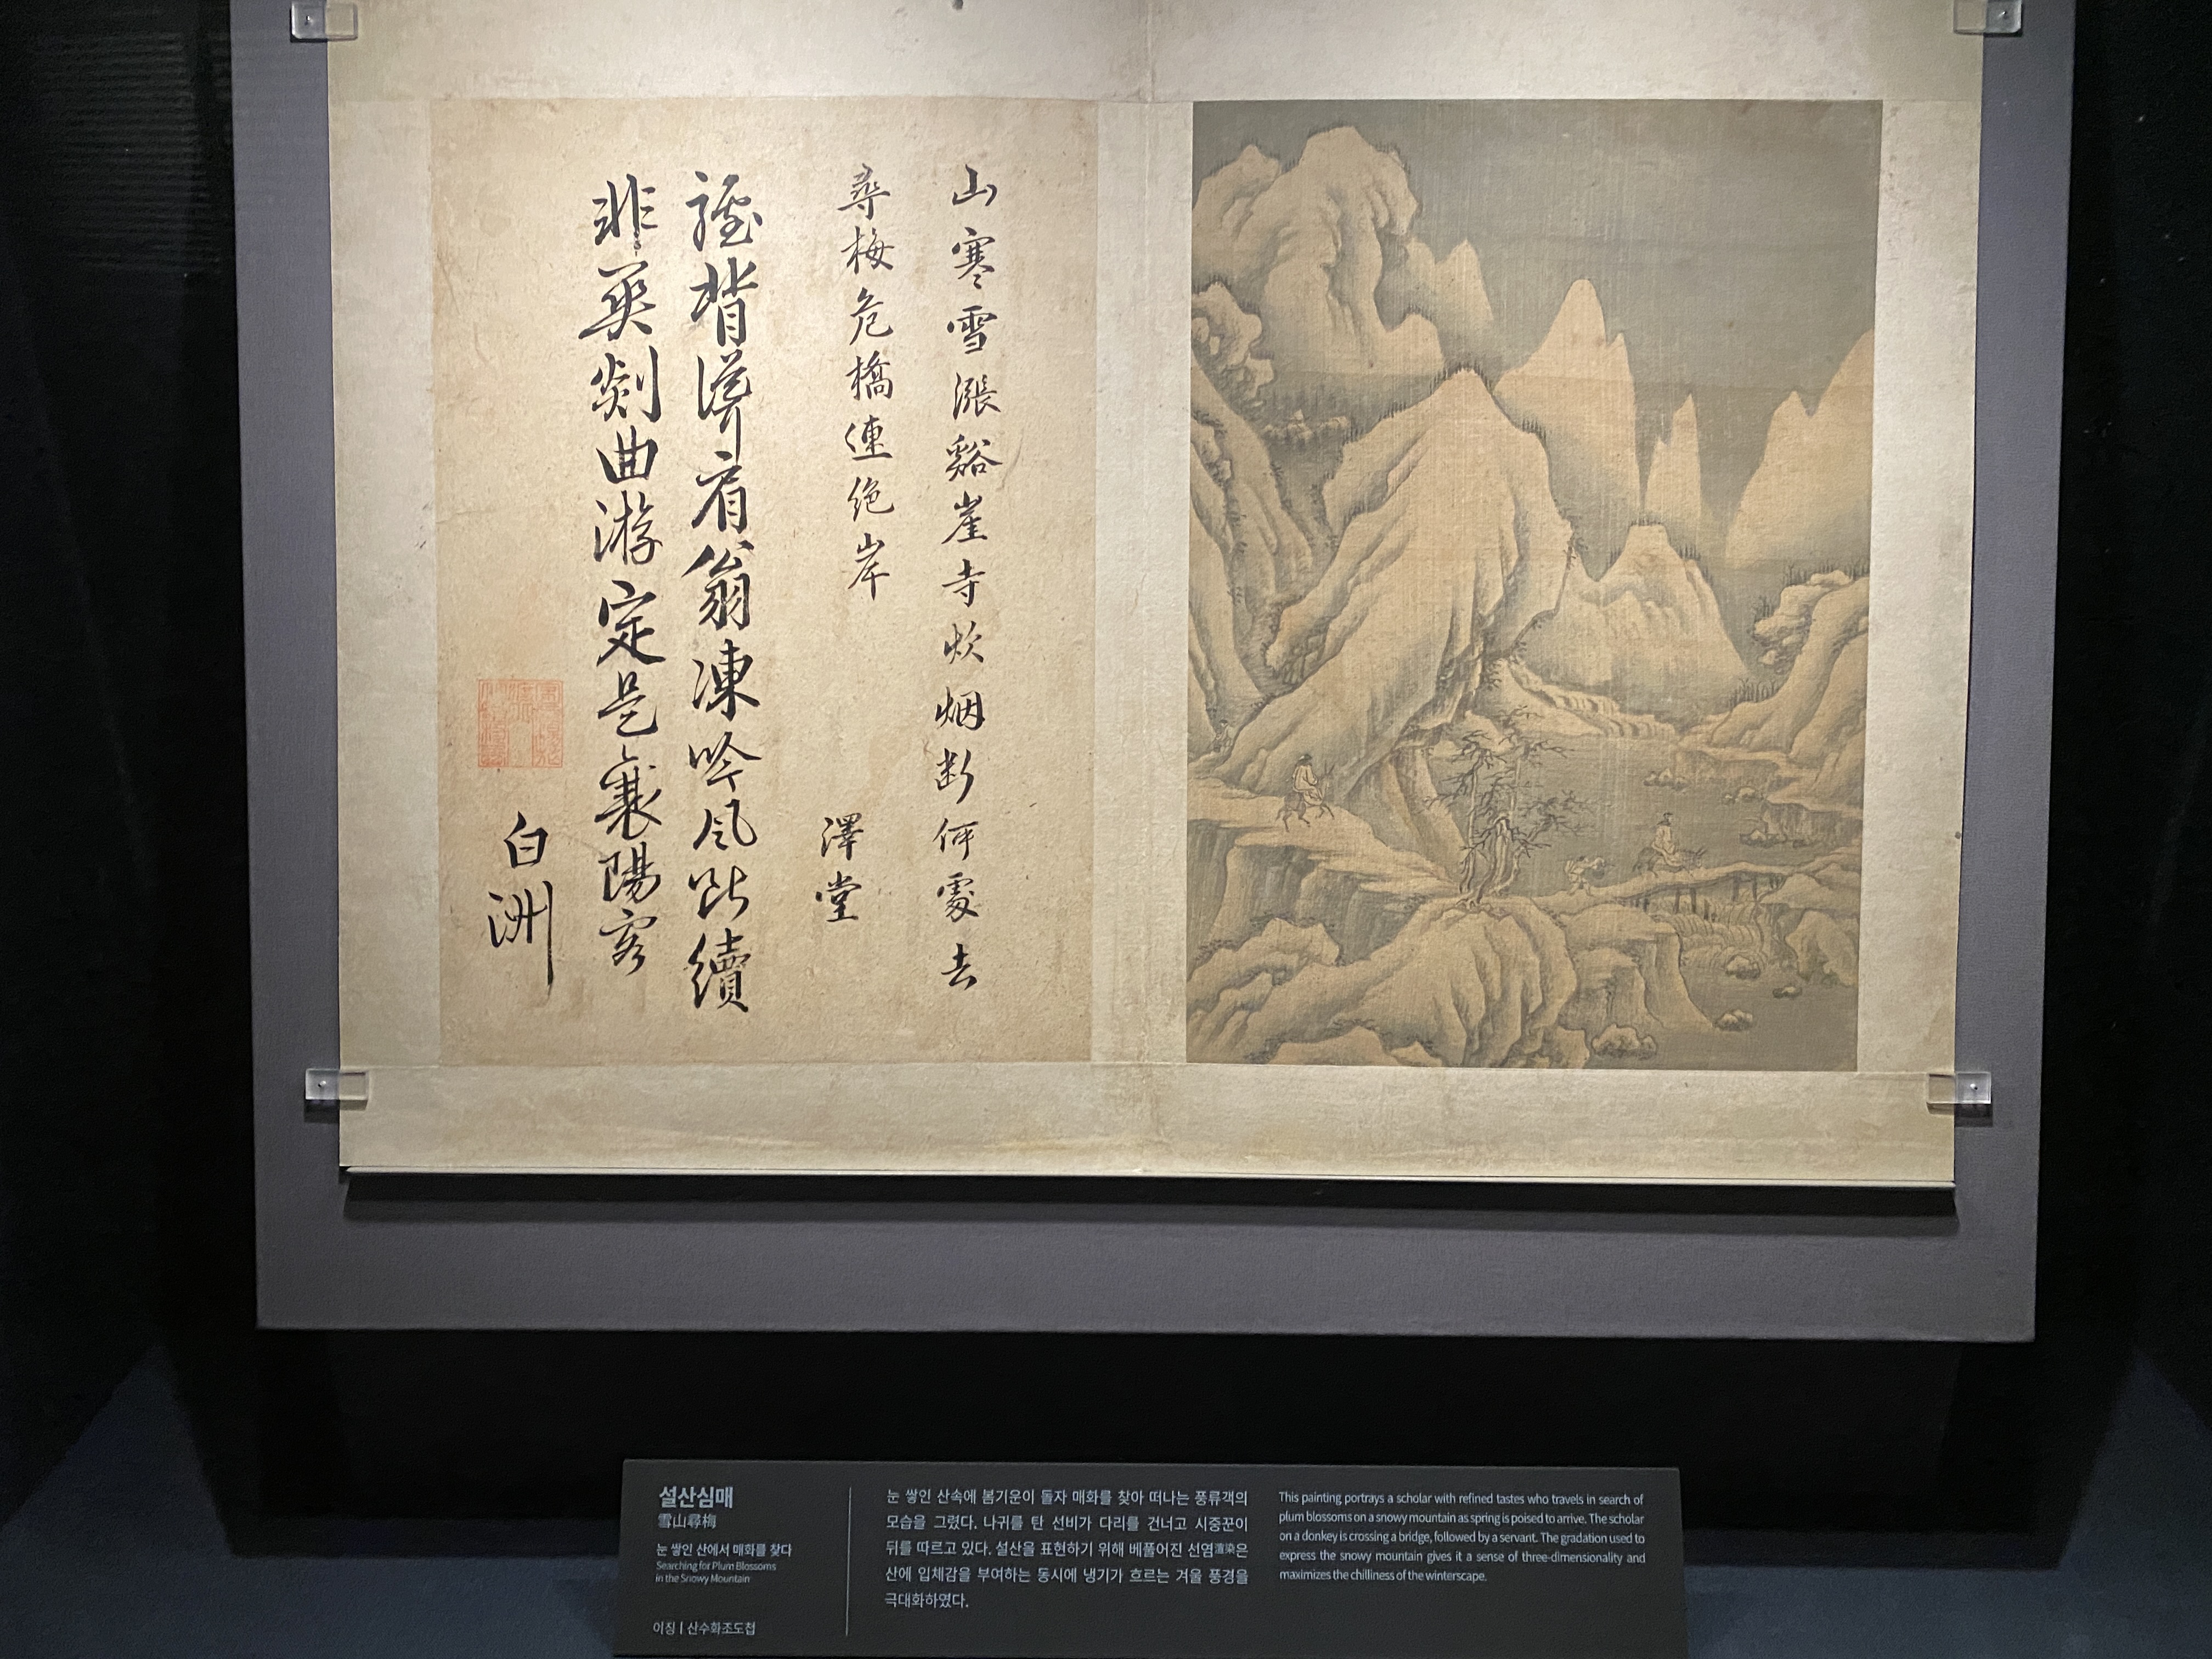 山寒雪漲谿崖寺炊烟断何處去
尋梅危橋連絶岸
澤堂
驢背滎肩翁凍吟風際續
非筴剡曲游定是襄陽客
白洲
설산심매
雪山尋梅
눈 쌓인 산에서 매화를 찾다
Searching for Plum Blossoms
in the Snowy Mountain
이징 | 산수화조도첩
눈 쌓인 산속에 봄기운이 돌자 매화를 찾아 떠나는 풍류객의
모습을 그렸다. 나귀를 탄 선비가 다리를 건너고 시중꾼이
뒤를 따르고 있다. 설산을 표현하기 위해 베풀어진 선염渲染은
산에 입체감을 부여하는 동시에 냉기가 흐르는 겨울 풍경을
극대화하였다.
This painting portrays a scholar with refined tastes who travels in search of
plum blossoms on a snowy mountain as spring is poised to arrive. The scholar
on a donkey is crossing a bridge, followed by a servant. The gradation used to
express the snowy mountain gives it a sense of three-dimensionality and
maximizes the chilliness of the winterscape.